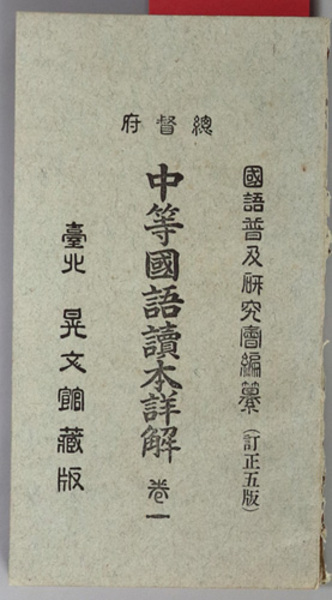 總督府
國語普及研究會編纂(訂正五版)
中等國語讀本詳解 卷一
臺北 晃文館藏版